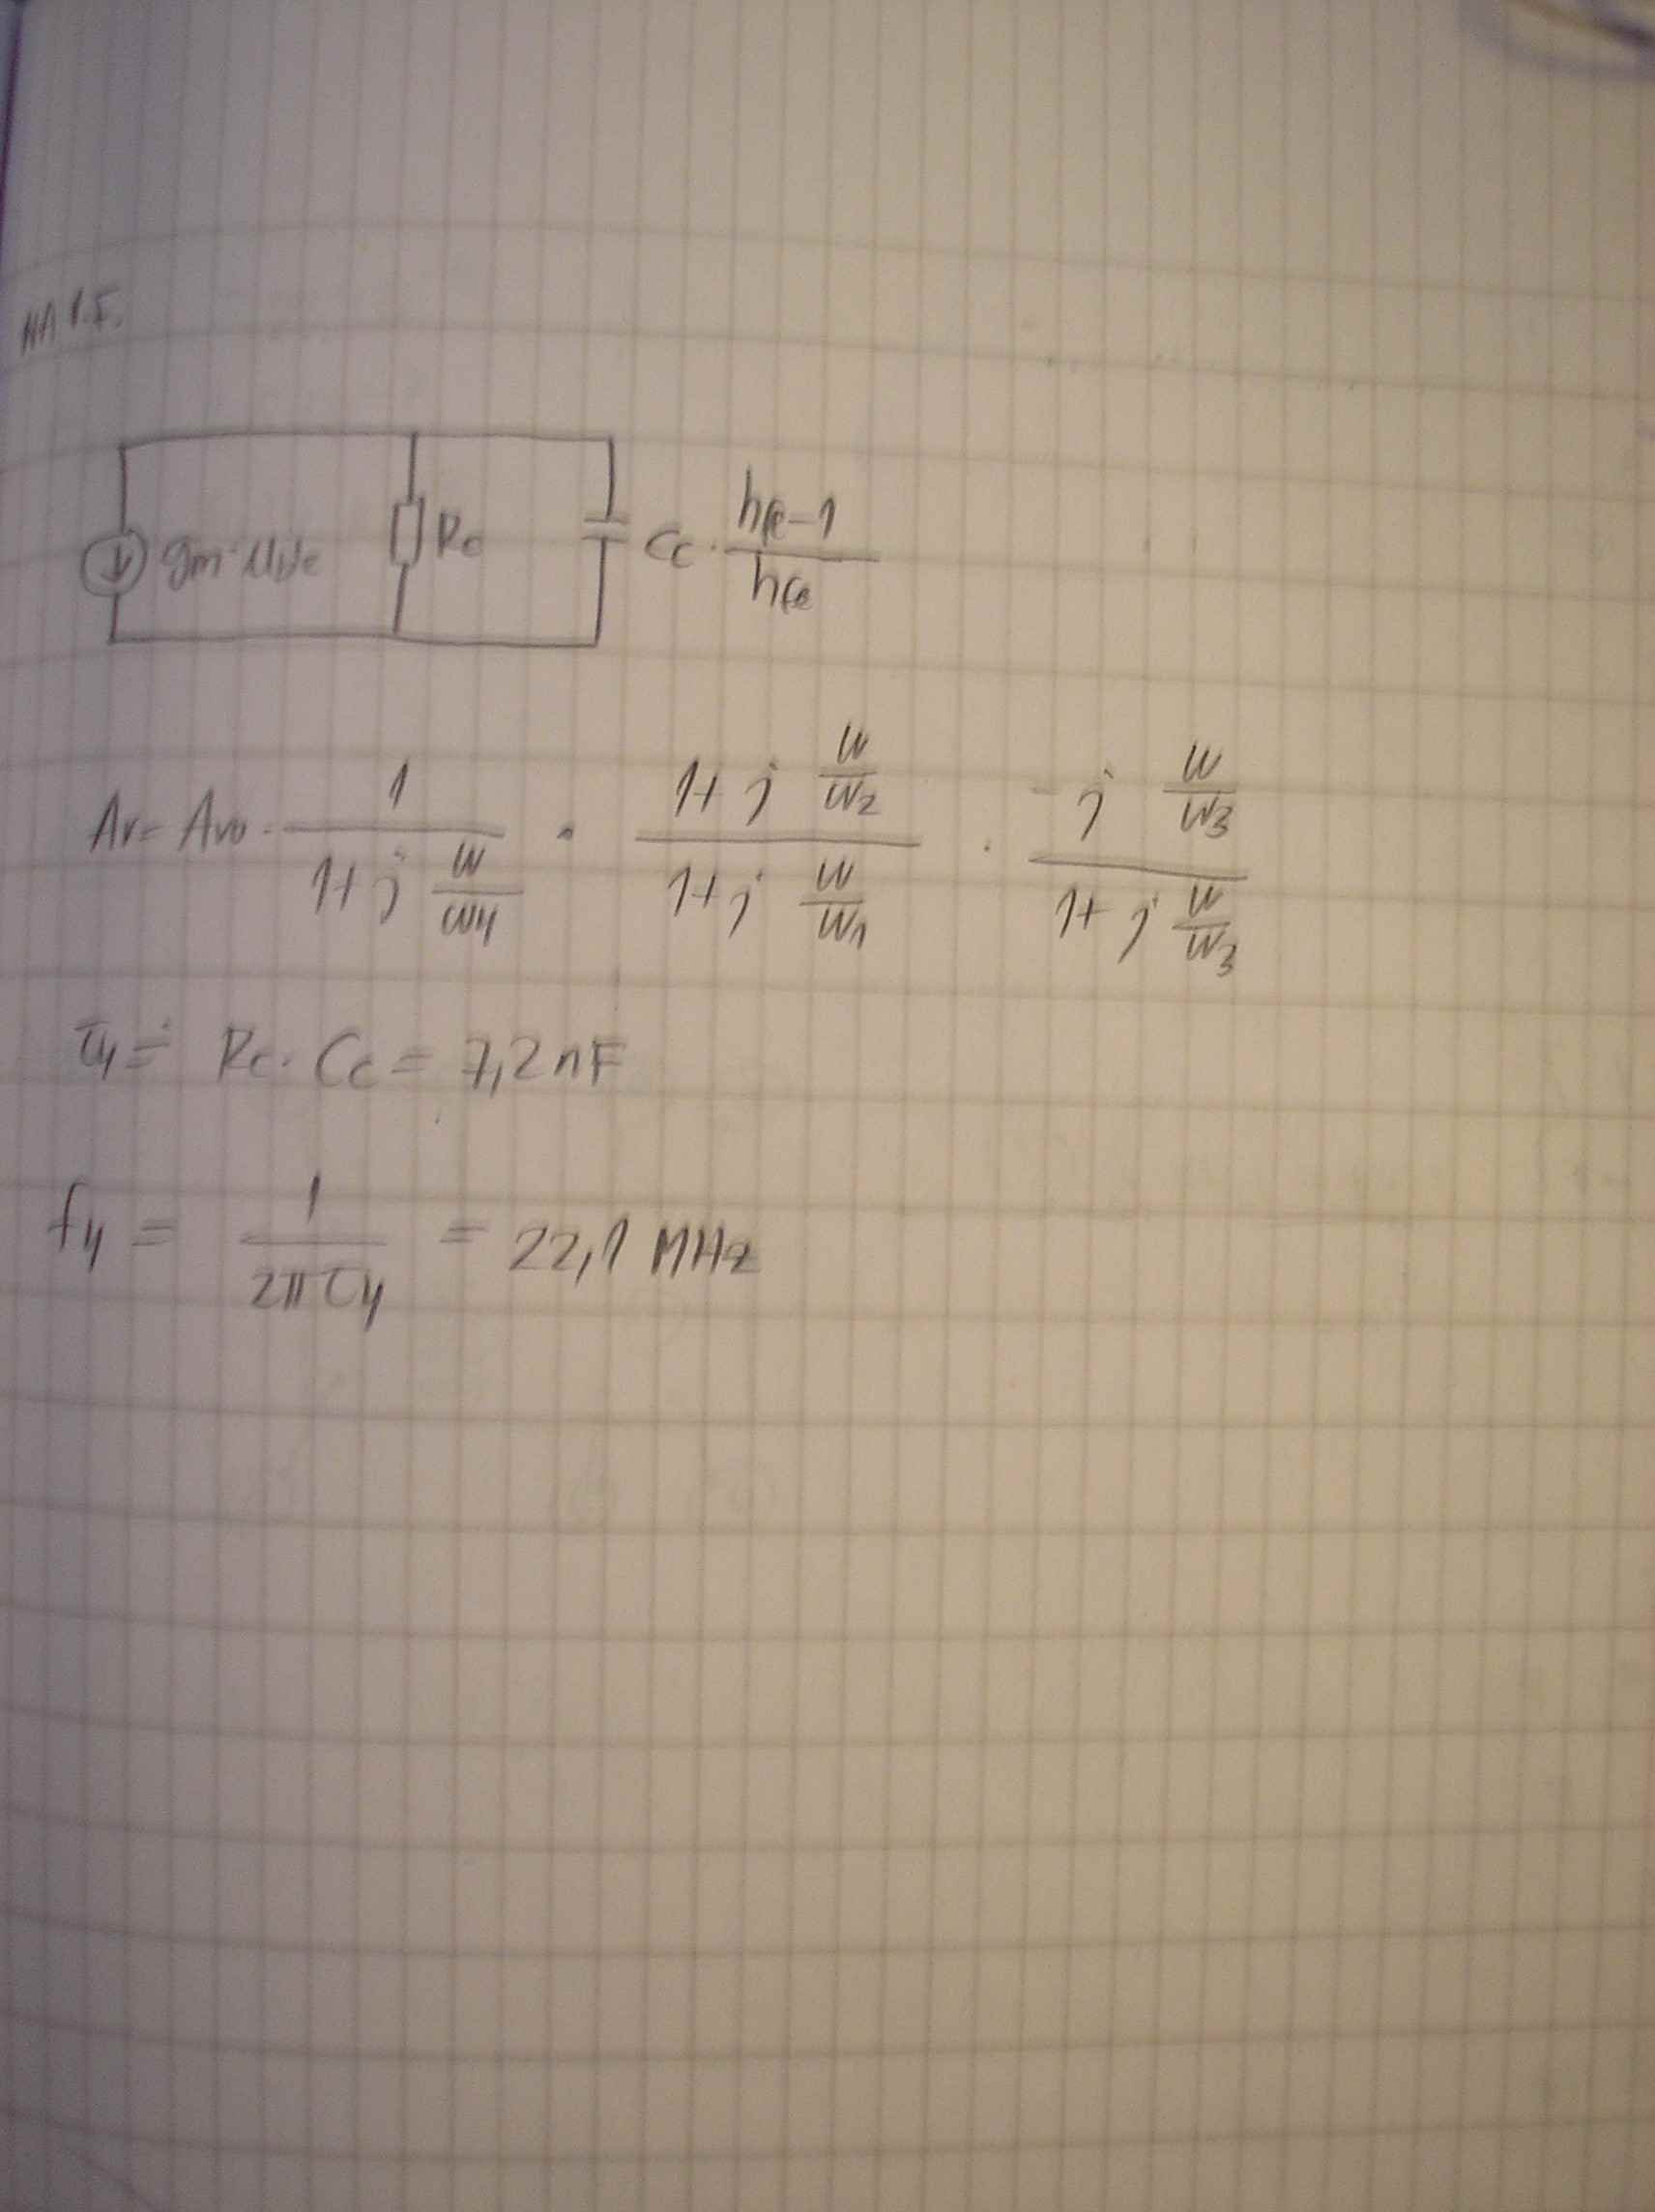 NA V.F.
gm·Ube Rc Cc · \frac{hfe-1}{hfe}
Av = Avo · \frac{1}{1+j \frac{w}{w4}} · \frac{1+j \frac{w}{w2}}{1+j \frac{w}{w1}} · \frac{-j \frac{w}{w3}}{1+j \frac{w}{w3}}
τ4 ≐ Rc · Cc = 7,2 nF
f4 = \frac{1}{2πτ4} = 22,1 MHz